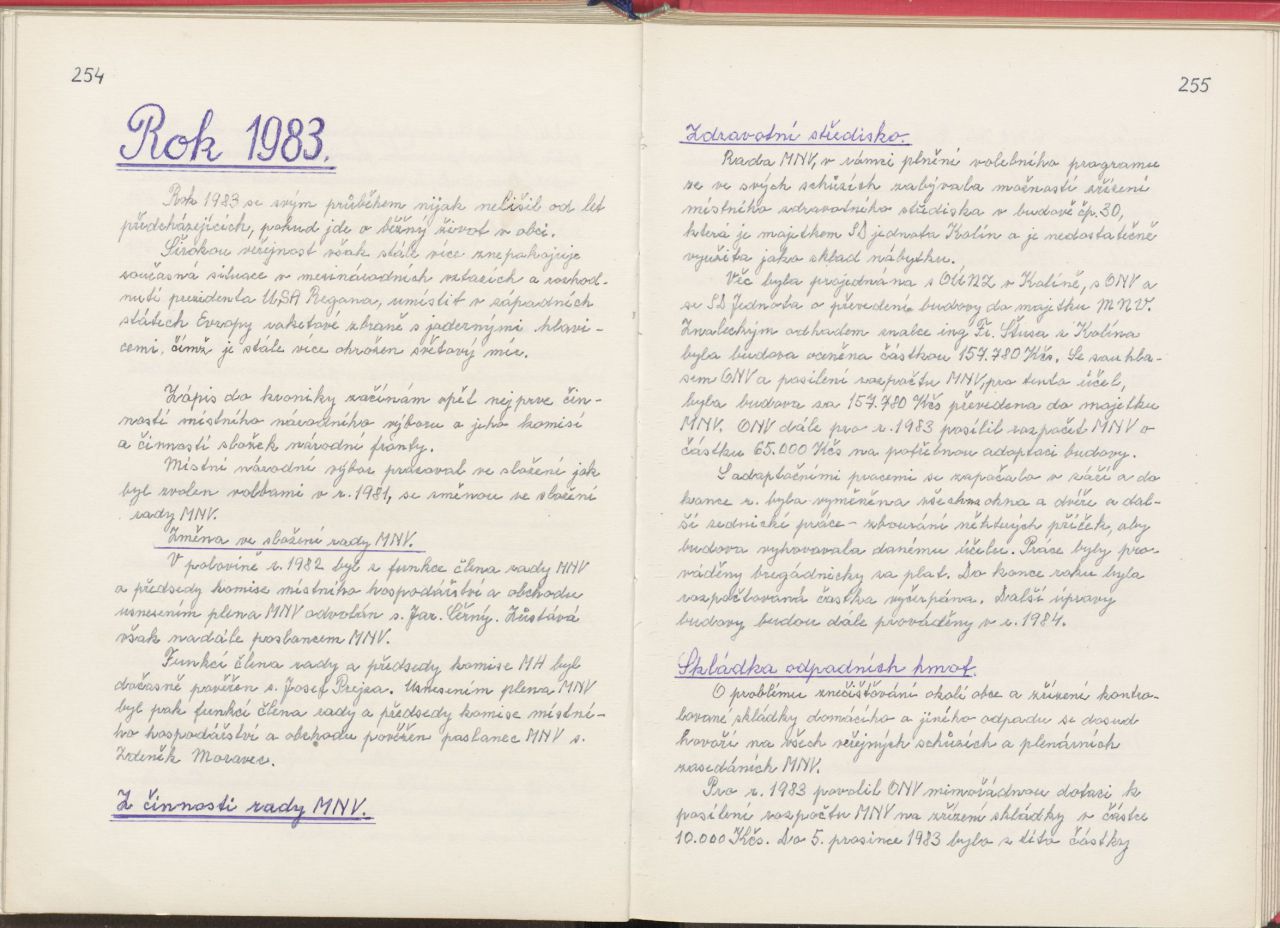 254
Rok 1983.
Rok 1983 se svým průběhem nijak nelišil od let
předcházejících, pokud jde o běžný život v obci.
Širokou veřejnost však stále více znepokojuje
současná situace v mezinárodních vztazích a rozhod-
nutí prezidenta USA Regana, umístit v západních
státech Evropy raketové zbraně s jadernými hlavi-
cemi, čímž je stále více ohrožen světový mír.
Zápis do kroniky začínám opět nejprve čin-
ností místního národního výboru a jeho komisí
a činností složek národní fronty.
Místní národní výbor pracoval ve složení jak
byl zvolen volbami v r. 1981, se změnou ve složení
rady MNV.
Změna ve složení rady MNV.
V polovině r. 1982 byl z funkce člena rady MNV
a předsedy komise místního hospodářství a obchodu
usnesením plena MNV odvolán s. Jar. Černý. Zůstává
však nadále poslancem MNV.
Funkcí člena rady a předsedy komise MH byl
dočasně pověřen s. Josef Prejza. Usnesením plena MNV
byl pak funkcí člena rady a předsedy komise místní-
ho hospodářství a obchodu pověřen poslanec MNV s.
Zdeněk Moravec.
Z činnosti rady MNV.
255
Zdravotní středisko.
Rada MNV, v rámci plnění volebního programu
se ve svých schůzích zabývala možností zřízení
místního zdravotního střediska v budově čp. 30,
která je majetkem SD jednota Kolín a je nedostatečně
využita jako sklad nábytku.
Věc byla projednána s OÚNZ v Kolíně, s ONV a
se SD Jednota o převedení budovy do majetku MNV.
Znaleckým odhadem znalce ing Fr. Štusa z Kolína
byla budova oceněna částkou 157.780 Kčs. Se souhla-
sem ONV a posílení rozpočtu MNV, pro tento účel,
byla budova za 157.780 Kčs převedena do majetku
MNV. ONV dále pro r. 1983 posílil rozpočet MNV o
částku 65.000 Kčs na potřebnou adaptaci budovy.
S adaptačními pracemi se započalo v září a do
konce r. byla vyměněna všechna okna a dveře a dal-
ší zednické práce - zbourání některých příček, aby
budova vyhovovala danému účelu. Práce byly pro-
váděny brigádnicky za plat. Do konce roku byla
rozpočtovaná částka vyčerpána. Další úpravy
budovy budou dále prováděny v r. 1984.
Skládka odpadních hmot.
O problému znečišťování okolí obce a zřízení kontro-
lované skládky domácího a jiného odpadu se dosud
hovoří na všech veřejných schůzích a plenárních
zasedáních MNV.
Pro r. 1983 povolil ONV mimořádnou dotaci k
posílení rozpočtu MNV na zřízení skládky v částce
10.000 Kčs. Do 5. prosince 1983 bylo z této částky